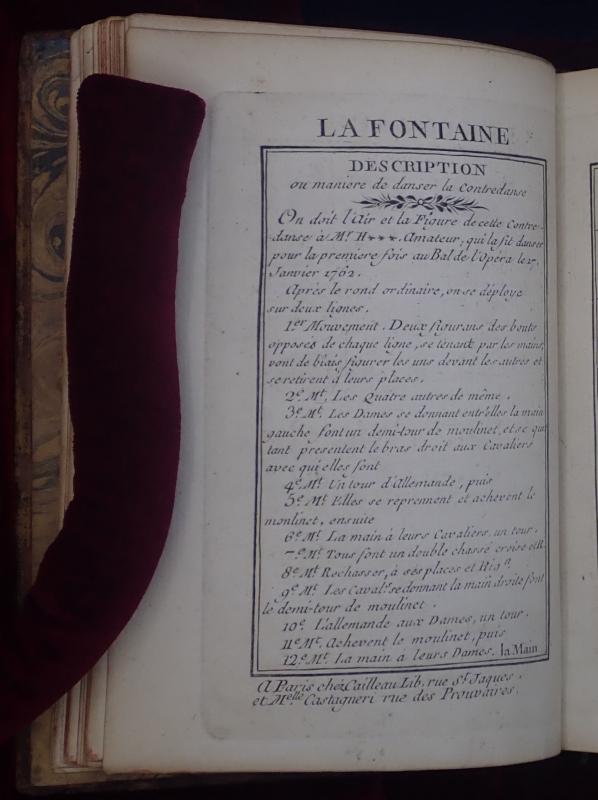 LA FONTAINE
DESCRIPTION
ou maniere de danser la Contredanse
On doit l'Air et la Figure de cette Contre-
danse à Mr. H***. Amateur, qui la fit danser
pour la premiere fois au Bal de l'Opéra le 17,
Janvier 1762.
Après le rond ordinaire, on se déploye
sur deux lignes.
1er Mouvement. Deux figurans des bouts
opposés de chaque ligne, se tenant par les mains,
vont de biais figurer les uns devant les autres et
se retirent à leurs places.
2e. Mt. Les Quatre autres de même.
3e. Mt. Les Dames se donnant entr'elles la main
gauche font un demi-tour de moulinet, et se quit
tant presentent le bras droit aux Cavaliers
avec qui elles font
4e. Mt. Un tour d'Allemande, puis
5e. Mt. Elles se reprennent et achevent le
moulinet, ensuite
6e. Mt. La main à leurs Cavaliers, un tour.
7e. Mt. Tous font un double chassé croisé et R.
8e. Mt. Rechasser, à ses places et Rign.
9e. Mt. Les Cavalrs. se donnant la main droite font
le demi-tour de moulinet.
10e. L'allemande aux Dames, un tour.
11e Mt. Achevent le moulinet, puis
12e. Mt. La main à leurs Dames. la Main
A Paris chez Cailleau Lib. rue St. Jaques.
et Melle Castagneri rue des Prouvaires.